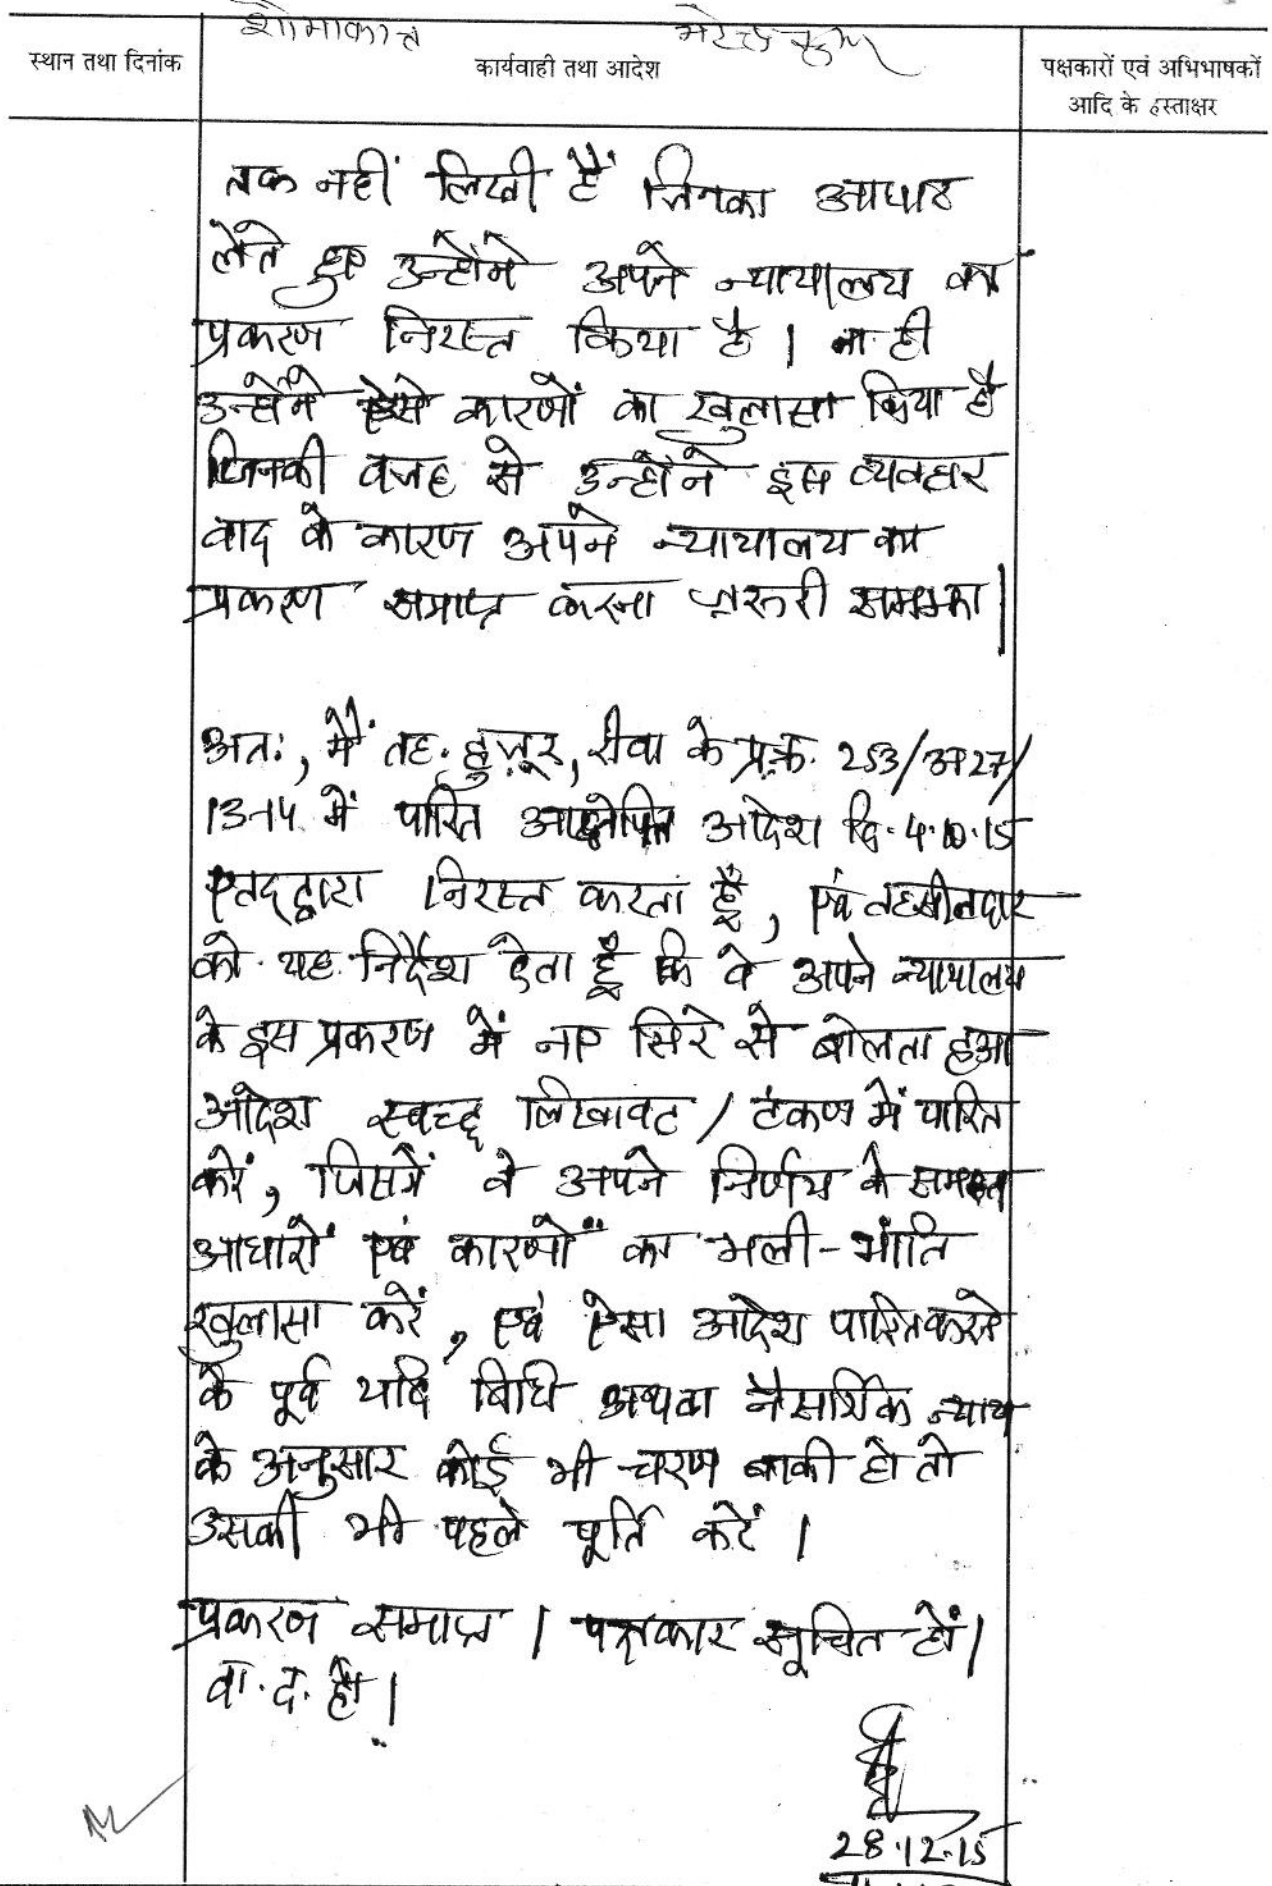 शोभाकान्त
स्थान तथा दिनांक
कार्यवाही तथा आदेश
पक्षकारों एवं अभिभाषकों
आदि के हस्ताक्षर
तक नहीं लिखी हैं जिनका आधार
लेते हुए उन्होंने अपने न्यायालय का
प्रकरण निरस्त किया है। ना ही
उन्होंने ऐसे कारणों का खुलासा किया है
जिनकी वजह से उन्होंने इस व्यवहार
वाद के कारण अपने न्यायालय का
प्रकरण समाप्त करना ज़रूरी समझा।
अतः, मैं तह. हुज़ूर, रीवा के प्र.क्र. 253/अ27/
13-14 में पारित आक्षेपित आदेश दि. 4.10.15
एतद्द्वारा निरस्त करता हूँ, एवं तहसीलदार
को यह निर्देश देता हूँ कि वे अपने न्यायालय
के इस प्रकरण में नए सिरे से बोलता हुआ
आदेश स्वच्छ लिखावट / टंकण में पारित
करें, जिसमें वे अपने निर्णय के समस्त
आधारों एवं कारणों का भली-भांति
खुलासा करें, एवं ऐसा आदेश पारित करने
के पूर्व यदि विधि अथवा नैसर्गिक न्याय
के अनुसार कोई भी चरण बाकी हो तो
उसकी भी पहले पूर्ति करें।
प्रकरण समाप्त। पक्षकार सूचित हों।
वा. द. हो।
28.12.15